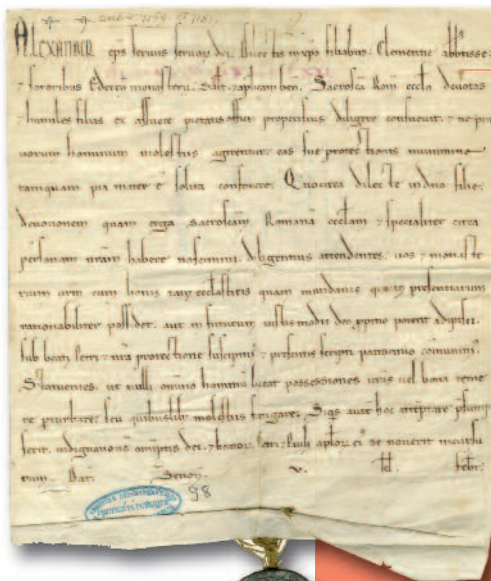 ALEXANDER eps seruus seruor dei. Dilectis in xpo filiabus. Clementie abbtisse
⁊ sororibus Ederen monasterii. salt ⁊ aplicam ben. Sacrosca Rom eccla deuotas
⁊ humiles filias ex assuete pietatis officio propensius diligere consueuit. ⁊ ne pra
uorum hominum molestiis agitentur. eas sue protectionis munimine
tamquam pia mater e solita confouere. Quocirca dilecte in dno filie.
deuotionem quam erga sacroscam Romanā ecclam ⁊ specialiter circa
personam nram habere noscimini. diligentius attendentes. uos ⁊ monaste
rium urm cum bonis tam ecclesticis quam mundanis que in presentiarum
rationabiliter possidet. aut in futurum iustis modis deo ppitio poterit adipisci.
sub beati Petri ⁊ nra protectione suscipimus ⁊ presentis scripti patrocinio comunim.
Statuentes. ut nulli omnino hominum liceat possessiones uras uel bona teme
re pturbare. seu quibuslib molestiis fatigare. Siqs aute hoc atteptare psump
serit. indignationem omiptis dei. ⁊ beator Petri ⁊ Pauli aplor ei se nouerit incursu
rum. Dat Senon. v. kl febr.
98